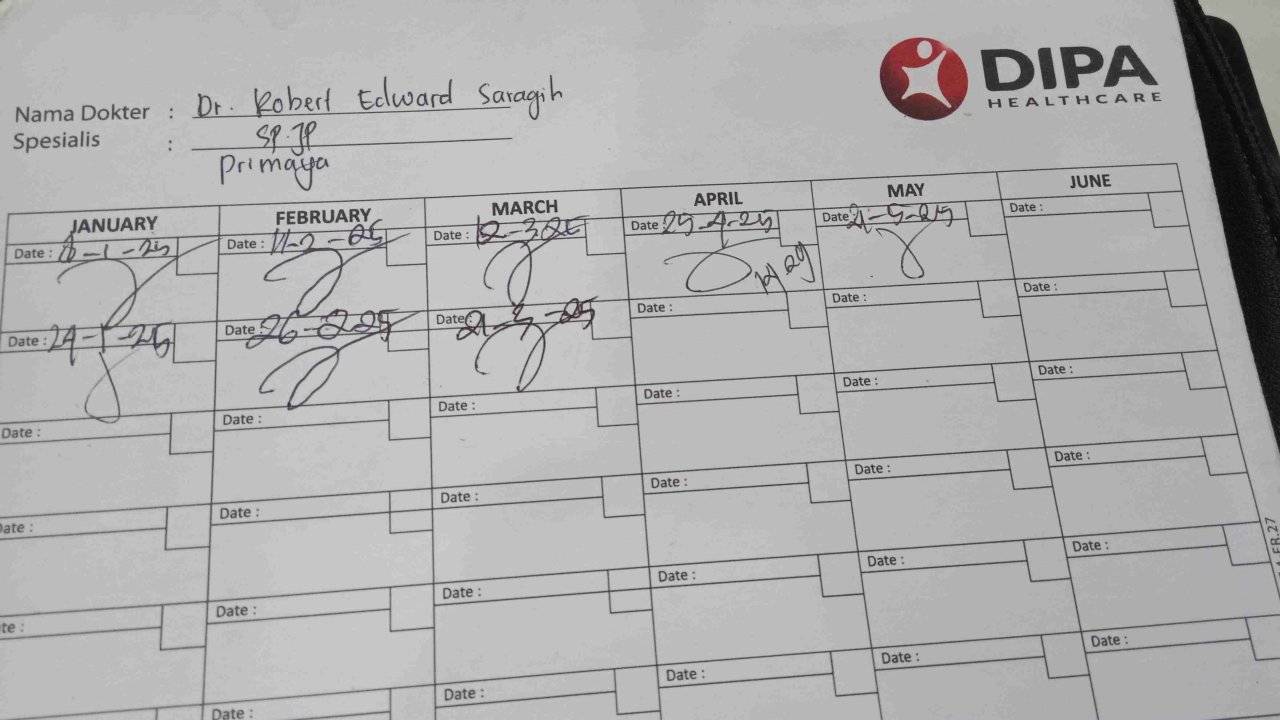 DIPA
HEALTHCARE
Nama Dokter : Dr. Robert Edward Saragih
Spesialis : SP.JP
Primaya
JANUARY FEBRUARY MARCH APRIL MAY JUNE
Date : Date : 11-2-25 Date : 12-3-25 Date : 25-4-25 Date : 21-5-25 Date :
Date : 24-1-25 Date : 26-2-25 Date : 21-3-25 Date : Date : Date :
Date : Date : Date : Date : Date : Date :
Date : Date : Date : Date : Date : Date :
Date : Date : Date : Date : Date : Date :
Date : Date : Date : Date : Date :